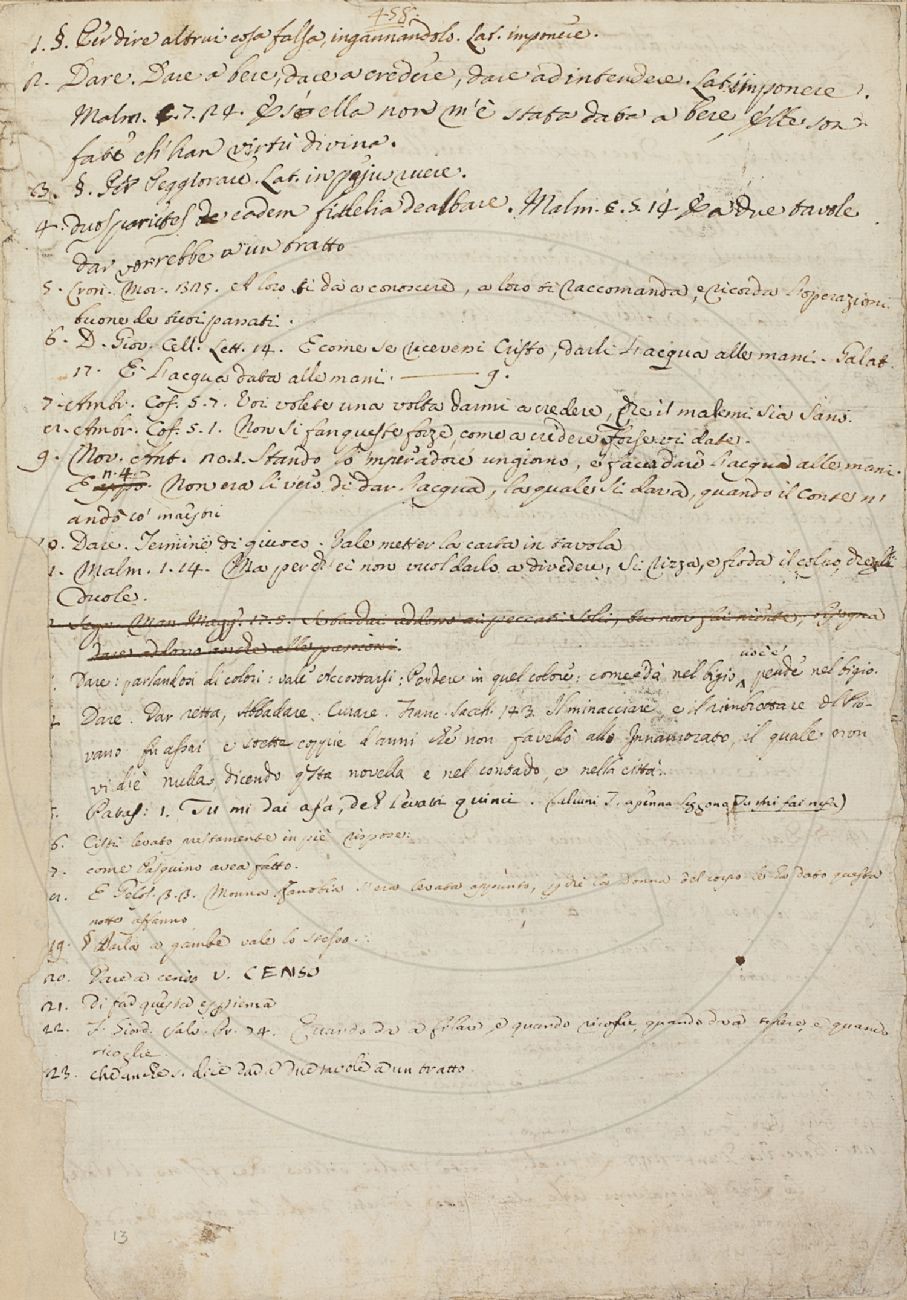 458.
1. §. Per dire altrui cosa falsa, ingannandolo. Lat. imponere.
2. Dare. Dare a bere, dare a credere, dare ad intendere. Lat. imponere.
Malm. 7. 24. ella non m'è stata data a bere, Elle son
fate ch'han virtù divina.
3. §. Per Peggiorare. Lat. in pejus ruere.
4. duos parietes de eadem fidelia dealbare. Malm. 6. 5. 14 E a due tavole
dar vorrebbe a un tratto
5. Cron. Mor. 325. A loro ti dà a conoscere, a loro ti raccomanda, e ricorda l'operazioni
buone de tuoi passati.
6. D. Giov. Cell. Lett. 14. E come se ricevessi Cristo, darli l'acqua alle mani. Galat.
17. E l'acqua data alle mani. 9.
7. Ambr. Cof. 5. 7. Voi volete una volta darmi a credere, che il male mi sia sano.
8. Ambr. Cof. 5. 1. Non si fan queste forze, come a credere forse vi date.
9. Nov. Ant. 20. 1. Stando lo 'mperadore un giorno, e facea dare l'acqua alle mani.
E n. 4. Non era lì verso di dar l'acqua, la quale si dava, quando il Conte n'
andò co' maggiori
0. Dare. Termine di giuoco. Vale metter la carta in tavola
1. Malm. 1. 14. Ma perch' ei non vuol darlo a divedere, Si rizza, e froda il colpo, ch'egli
duole.
Segn. Man. Magg. 17. 5. Se badar addosso ai peccati soli, tu non fai niente, bisogna
dare addosso anche alle passioni.
Dare: parlandosi di colori: vale Accostarsi; Pendere in quel colore; come dà nel bigio, cioè pende nel bigio.
Dare. Dar retta, Abbadare. Curare. Franc. Sacch. 143. Il minacciare e il rimbrottare del Pio-
vano fu assai e stette coppie d'anni che non favellò allo Innamorato, il quale non
vi diè nulla dicendo questa novella e nel contado, e nella città.
5. Pataff. 1. Tu mi dai afa, deh levati quinci. (Salvini Tu mi fai afa)
6. Cisti levato prestamente in piè rispose:
7. come Pasquino avea fatto.
8. E Gelos. 3. 3. Monna Zanobia s'era levata appunto, che la donna del corpo le ha dato questa
notte affanno
19. § Darla a gambe vale lo stesso.
20. Dare a censo V. CENSO
21. Di far questa esperienza
22. F. Giord. Salv. Pr. 74. Quando dà a filare, e quando ricoglie, quando dà a tessere, e quando
ricoglie.
23. che anche si dice dare a due tavole a un tratto
13